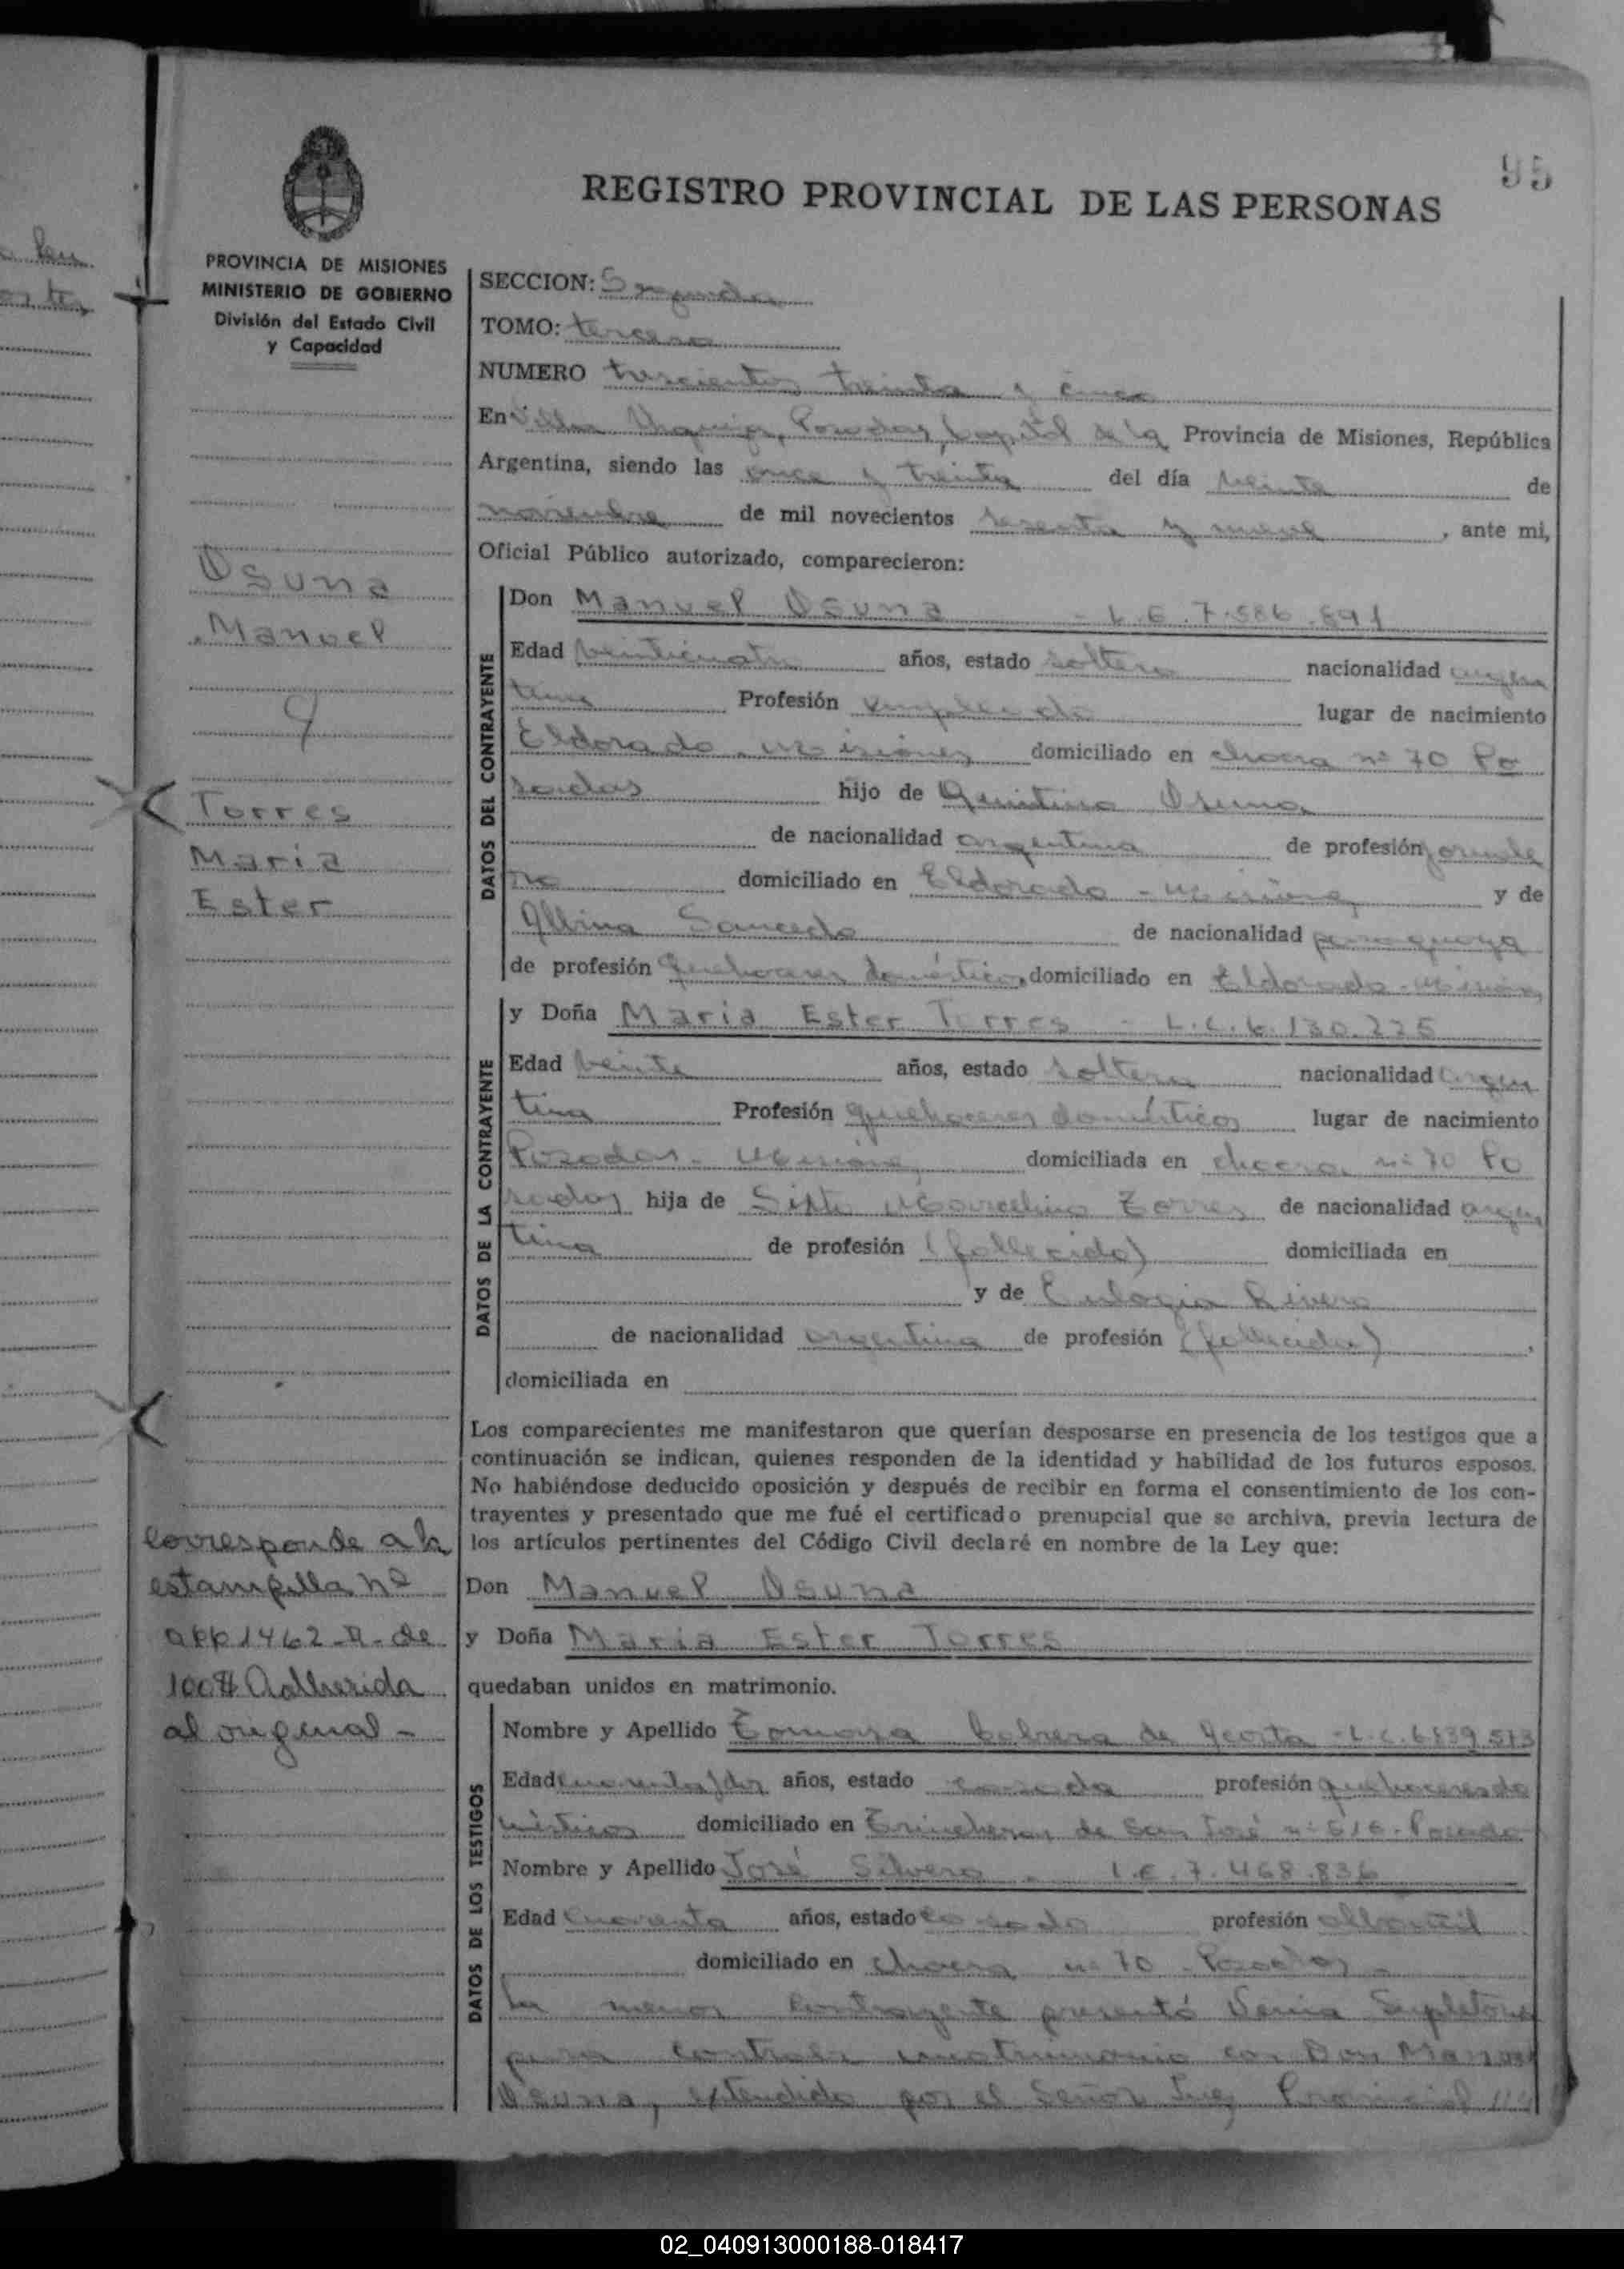 95
REGISTRO PROVINCIAL DE LAS PERSONAS
PROVINCIA DE MISIONES
MINISTERIO DE GOBIERNO
División del Estado Civil
y Capacidad
Osuna
Manuel
Torres
Maria
Ester
Corresponde a la
estampilla nº
1462-A- de
100$ Adherida
al original -
SECCION: Segunda
TOMO: tercero
NUMERO trescientos treinta y cinco
En Villa Urquiza, Posadas, Capital de la Provincia de Misiones, República
Argentina, siendo las once y treinta del día veinte de
noviembre de mil novecientos sesenta y nueve, ante mi,
Oficial Público autorizado, comparecieron:
DATOS DEL CONTRAYENTE
Don Manuel Osuna - L.E. 7.586.891
Edad veinticuatro años, estado soltero nacionalidad argen
tina Profesión empleado lugar de nacimiento
Eldorado, Misiones domiciliado en chacra nº 70 Po
sadas hijo de Quintino Osuna
de nacionalidad argentina de profesión jornale
ro domiciliado en Eldorado - Misiones y de
Albina Saucedo de nacionalidad paraguaya
de profesión quehaceres domésticos, domiciliado en Eldorado - Misiones
DATOS DE LA CONTRAYENTE
y Doña Maria Ester Torres - L.C. 6.130.225
Edad veinte años, estado soltera nacionalidad argen
tina Profesión quehaceres domésticos lugar de nacimiento
Posadas - Misiones domiciliada en chacra nº 70 Po
sadas hija de Sixto Marcelino Torres de nacionalidad argen
tina de profesión (fallecido) domiciliada en
y de Eulogia Rivero
de nacionalidad argentina de profesión (fallecida),
domiciliada en
Los comparecientes me manifestaron que querían desposarse en presencia de los testigos que a
continuación se indican, quienes responden de la identidad y habilidad de los futuros esposos.
No habiéndose deducido oposición y después de recibir en forma el consentimiento de los con-
trayentes y presentado que me fué el certificado prenupcial que se archiva, previa lectura de
los artículos pertinentes del Código Civil declaré en nombre de la Ley que:
Don Manuel Osuna
y Doña Maria Ester Torres
quedaban unidos en matrimonio.
DATOS DE LOS TESTIGOS
Nombre y Apellido Tomasa Cabrera de Acosta - L.C. 6.839.513
Edad cuarenta y dos años, estado casada profesión quehaceres do
mésticos domiciliado en Trincheras de San José nº 616 - Posadas
Nombre y Apellido José Silvero - L.E. 7.468.836
Edad cuarenta años, estado casado profesión albañil
domiciliado en chacra nº 70 - Posadas -
La menor contrayente presentó Venia Supletoria
para contraer matrimonio con Don Manuel
Osuna, extendida por el Señor Juez Provincial
02_040913000188-018417